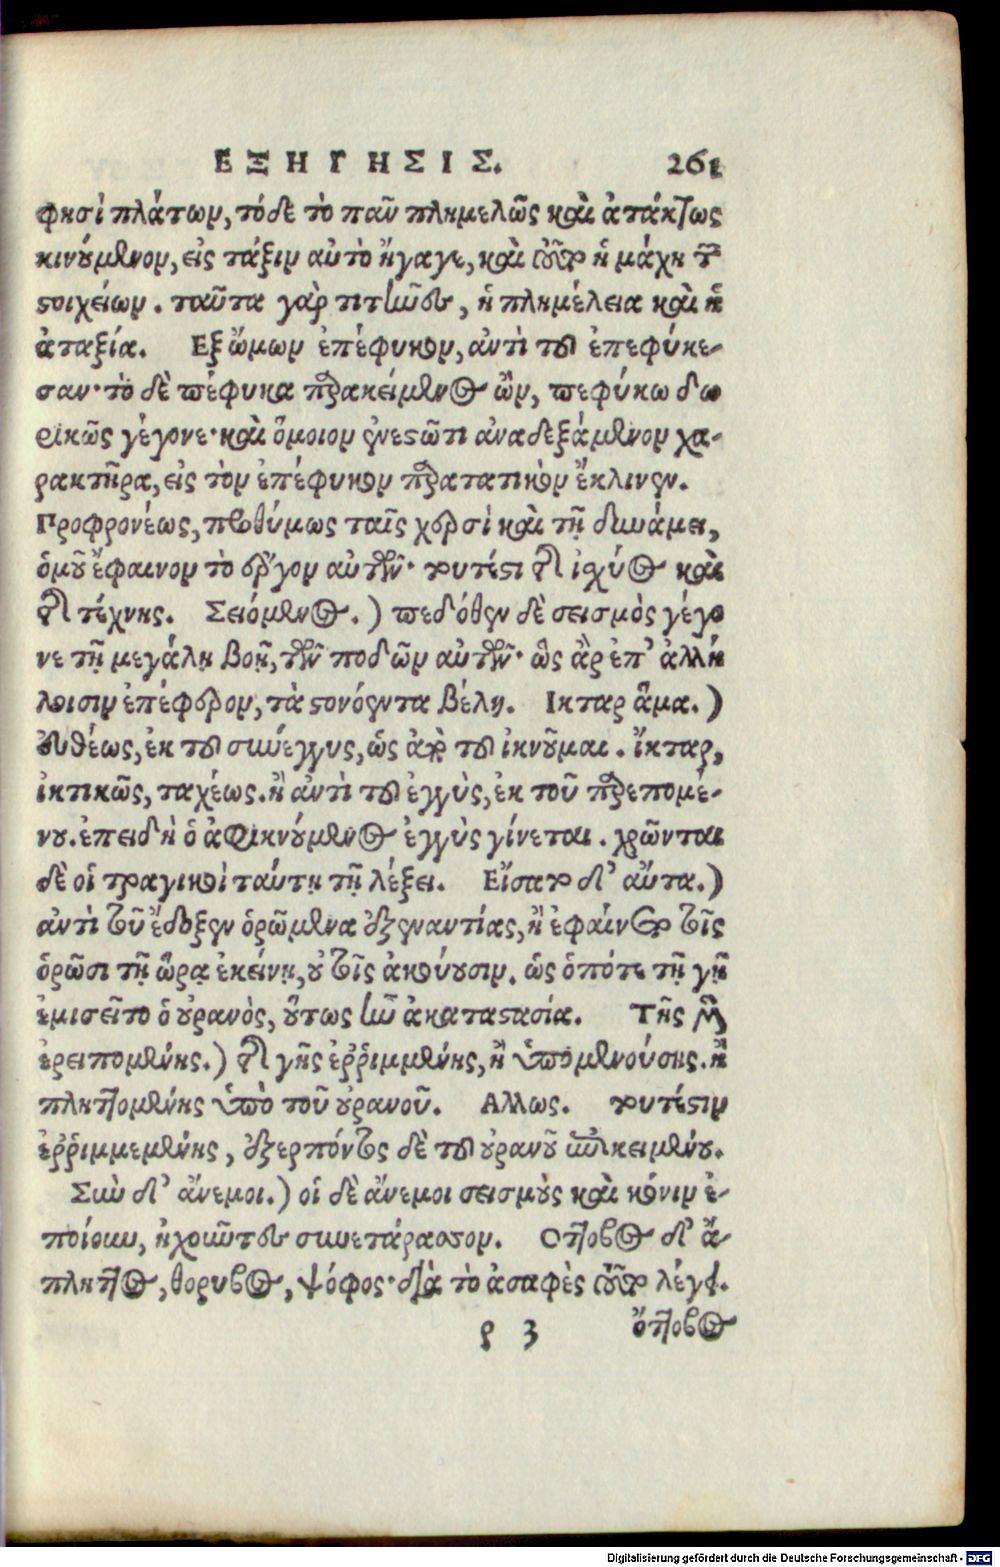 ΕΞΗΓΗΣΙΣ. 261
φησὶ πλάτων, τόδε τὸ παῦ πλημελῶς καὶ ἀτάκτως
κινούμενον, εἰς τάξιν αὐτὸ ἤγαγε, καὶ αὕτη ἡ μάχη τῶν
στοιχείων. ταῦτα γὰρ τιτᾶνες, ἡ πλημέλεια καὶ ἡ
ἀταξία. Εξ ὤμων ἐπέφυκον, ἀντὶ τοῦ ἐπεφύκε-
σαν· τὸ δὲ πέφυκα παρακείμενος ὢν, πεφύκω δω
ρικῶς γέγονε· καὶ ὅμοιον ἐνεστῶτι ἀναδεξάμενον χα-
ρακτῆρα, εἰς τὸν ἐπέφυκον παρατατικὸν ἔκλινεν.
Προφρονέως, προθύμως ταῖς χερσὶ καὶ τῇ δυνάμει,
ὁμοῦ ἔφαινον τὸ ἔργον αὐτῶν· τουτέστι τῆς ἰσχύος καὶ
τῆς τέχνης. Σειόμενος.) πεδόθεν δὲ σεισμὸς γέγο
νε τῇ μεγάλῃ βοῇ, τῶν ποδῶν αὐτῶν· ὡς ἂρ ἐπ' ἀλλή
λοισιν ἐπέφερον, τὰ στονόεντα βέλη. Ικταρ ἅμα.)
εὐθέως, ἐκ τοῦ συνέγγυς, ὡς ἀπὸ τοῦ ἱκνοῦμαι. ἴκταρ,
ἱκτικῶς, ταχέως. ἢ ἀντὶ τοῦ ἐγγὺς, ἐκ τοῦ παρεπομέ-
νου. ἐπειδὴ ὁ ἀφικνούμενος ἐγγὺς γίνεται. χρῶνται
δὲ οἱ τραγικοὶ ταύτῃ τῇ λέξει. Εἴσατο δ' ἄντα.)
ἀντὶ τοῦ ἔδοξεν ὁρώμενα ἐξεναντίας, ἢ ἐφαίνετο τοῖς
ὁρῶσι τῇ ὥρᾳ ἐκείνῃ, ἢ τοῖς ἀκούουσιν. ὡς ὁπότε τῇ γῇ
ἐμισεῖτο ὁ οὐρανὸς, οὕτως ἦν ἀκαταστασία. Τῆς μὲν
ἐρειπομένης.) τῆς γῆς ἐῤῥιμμένης, ἢ ὑπομενούσης. ἢ
πληττομένης ὑπὸ τοῦ οὐρανοῦ. Αλλως. τουτέστιν
ἐῤῥιμμεμένης, ἐξερπόντος δὲ τοῦ οὐρανοῦ ἐπικειμένου.
Σὺν δ' ἄνεμοι.) οἱ δὲ ἄνεμοι σεισμοὺς καὶ κόνιν ἐ-
ποίουν, ἠχοῦντες συνετάρασσον. Οττοβος δ' ἄ-
πλητος, θορυβος, ψόφος· διὰ τὸ ἀσαφὲς οὕτω λέγει.
ρ 3 ὄττοβος
Digitalisierung gefördert durch die Deutsche Forschungsgemeinschaft - DFG